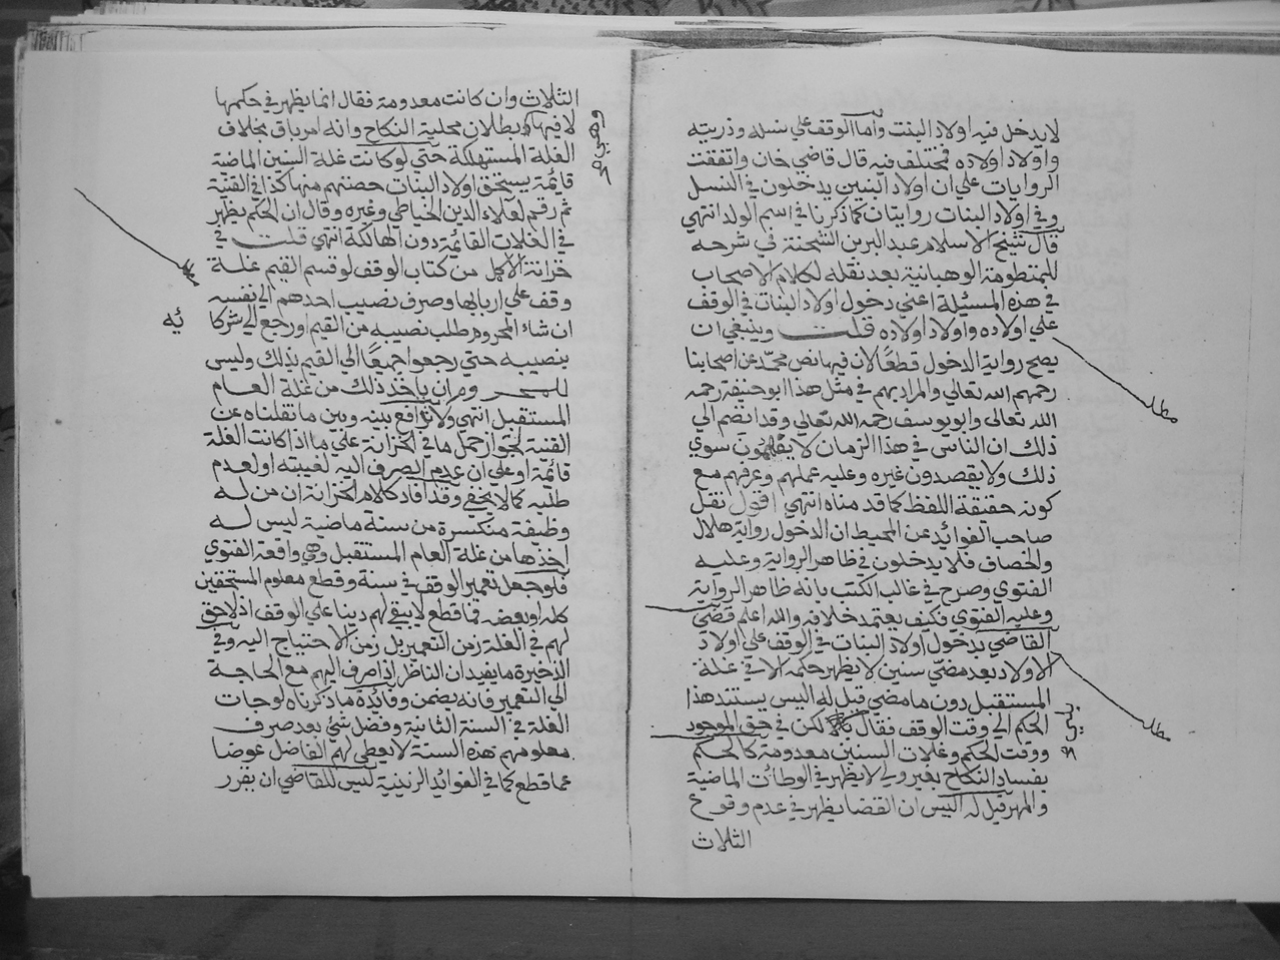 لا يدخل فيه اولاد البنت وأما الوقف علي نسله وذريته
واولاد اولاده فمختلف فيه قال قاضي خان واتفقت
الروايات علي ان اولاد البنين يدخلون في النسل
وفي اولاد البنات روايتان كما ذكرنا في اسم الولد انتهي
قال شيخ الاسلام عبد البر بن الشحنة في شرحه
للمنظومة الوهبانية بعد نقله لكلام الاصحاب
في هذه المسئلة اعني دخول اولاد البنات في الوقف
علي اولاده واولاد اولاده قلت وينبغي ان
يصح رواية الدخول قطعا لان فيها نص محمد عن اصحابنا
رحمهم الله تعالي والمراد بهم في مثل هذا ابو حنيفة رحمه
الله تعالى وابو يوسف رحمه الله تعالي وقد انضم الي
ذلك ان الناس في هذا الزمان لا يفهمون سوي
ذلك ولا يقصدون غيره وعليه عملهم وعرفهم مع
كونه حقيقة اللفظ كما قد مناه انتهي اقول نقل
صاحب الفوائد عن المحيط ان الدخول رواية هلال
والخصاف فلا يدخلون في ظاهر الرواية وعليه
الفتوي وصرح في غالب الكتب بانه ظاهر الرواية
وعليه الفتوي فكيف يعتمد خلافه والله اعلم قضي
القاضي بدخول اولاد البنات في الوقف علي اولاد
الاولاد بعد مضي سنين لا يظهر حكمه الا في غلة
المستقبل دون ما مضي قيل له اليس يستند هذا
الحكم الي وقت الوقف فقال لكن في حق الموجود
ووقت الحكم وغلات السنين معدومة كالحكم
بفساد النكاح بغير ولي لا يظهر في الوطآت الماضية
والمهر قيل له اليس ان القضا يظهر في عدم وقوع
الثلاث
مطلب
مطلب
الثلاث وان كانت معدومة فقال انما يظهر في حكمها
لا فيها وبطلان محلية النكاح وانه امر باق بخلاف
الغلة المستهلكة حتي لو كانت غلة السنين الماضية
قائمة يستحق اولاد البنات حصتهم منها كذا في القنية
ثم رقم لعلاء الدين الخياطي وغيره وقال ان الحكم يظهر
في الغلات القائمة دون الهالكة انتهي قلت في
خزانة الاكمل من كتاب الوقف لو قسم القيم غلة
وقف علي اربابها وصرف نصيب احدهم الي نفسه
ان شاء المحروم طلب نصيبه من القيم او رجع الي شركا
ئه
بنصيبه حتي رجعوا جميعا الي القيم بذلك وليس
للمحروم ان ياخذ ذلك من غلة العام
المستقبل انتهي ولا تدافع بينه وبين ما نقلناه عن
القنية لجواز حمل ما في الخزانة علي ما اذا كانت الغلة
قائمة او علي ان عدم الصرف اليه لغيبته او لعدم
طلبه كما لا يخفي وقد افاد كلام الخزانة ان من له
وظيفة منكسرة من سنة ماضية ليس له
اخذها من غلة العام المستقبل وهي واقعة الفتوي
فلو جعل تعمير الوقف في سنة وقطع معلوم المستحقين
كله او بعضه فما قطع لا يبقي لهم دينا علي الوقف اذ لا حق
لهم في الغلة زمن التعمير بل زمن الاحتياج اليه وفي
الذخيرة ما يفيد ان الناظر اذا صرف اليهم مع الحاجة
الي التعمير فانه يضمن وفائدة ما ذكرناه لو جات
الغلة في السنة الثانية وفضل شئ بعد صرف
معلومهم هذه السنة لا يعطي لهم الفاضل عوضا
عما قطع كما في الفوائد الزينية ليس للقاضي ان يقرر